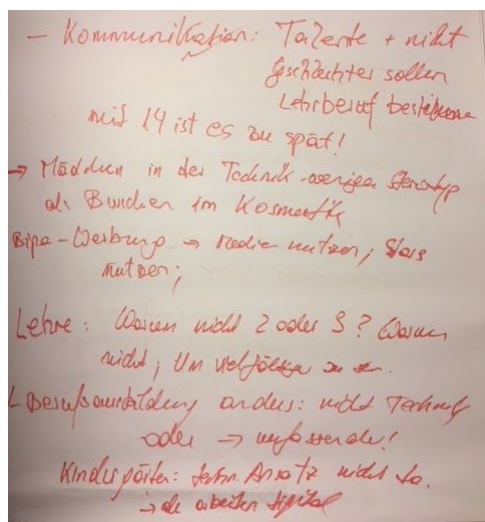 - Kommunikation: Talente + nicht
Geschlechter sollen
Lehrberuf bestimmen
mit 14 ist es zu spät!
→ Mädchen in der Technik weniger Stereotyp
als Burschen im Kosmetik
Bipa-Werbung → Medien nutzen; Stars
nutzen;
Lehre: Warum nicht 2 oder 3? Warum
nicht, um vielfältiger zu
Berufsausbildung anders: nicht Technik
oder → umfassender!
Kindergärten: Ansatz nicht so.
→ da arbeiten digital